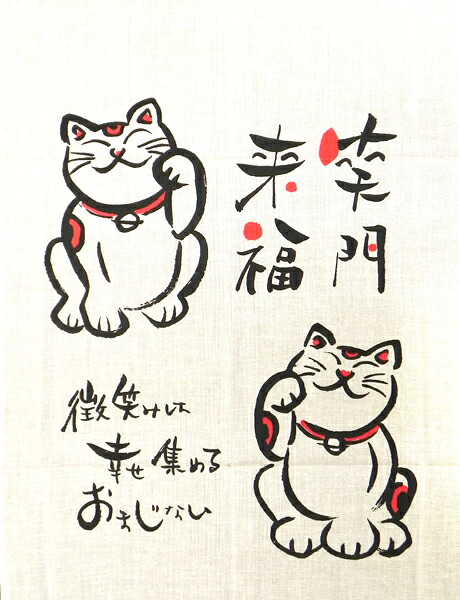 笑門
来福
微笑みは
幸せ集める
おまじない